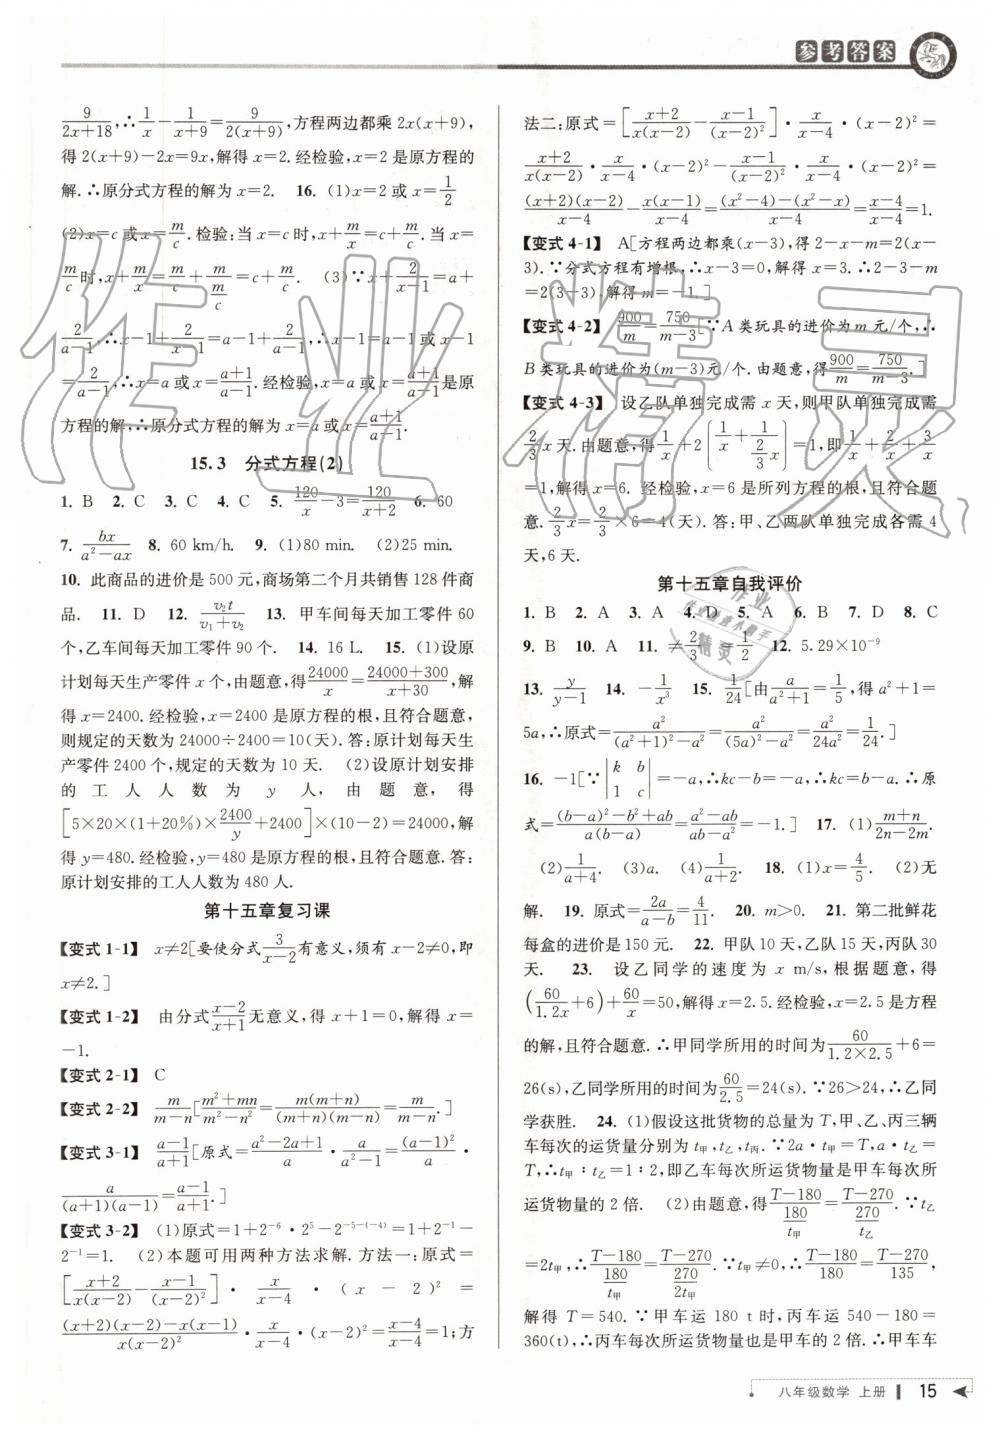 参考答案
9/(2x+18),∴1/x−1/(x+9)=9/(2(x+9)),方程两边都乘 2x(x+9),
得 2(x+9)−2x=9x,解得 x=2. 经检验,x=2 是原方程的
解.∴原分式方程的解为 x=2. 16. (1)x=2 或 x=1/2
(2)x=c 或 x=m/c. 检验:当 x=c 时,x+m/x=c+m/c. 当 x=
m/c 时,x+m/x=m/c+m/(m/c)=c+m/c. (3)∵x+2/(x−1)=a+
2/(a−1),∴x−1+2/(x−1)=a−1+2/(a−1),∴x−1=a−1 或 x−1
=2/(a−1),∴x=a 或 x=(a+1)/(a−1). 经检验,x=a 或 x=(a+1)/(a−1) 是原
方程的解,∴原分式方程的解为 x=a 或 x=(a+1)/(a−1).
15.3 分式方程(2)
1. B 2. C 3. C 4. C 5. 120/x−3=120/(x+2) 6. 60
7. bx/(a²−ax) 8. 60 km/h. 9. (1)80 min. (2)25 min.
10. 此商品的进价是 500 元,商场第二个月共销售 128 件商
品. 11. D 12. v₂t/(v₁+v₂) 13. 甲车间每天加工零件 60
个,乙车间每天加工零件 90 个. 14. 16 L. 15. (1)设原
计划每天生产零件 x 个,由题意,得 24000/x=(24000+300)/(x+30),解
得 x=2400. 经检验,x=2400 是原方程的根,且符合题意,
则规定的天数为 24000÷2400=10(天). 答:原计划每天生
产零件 2400 个,规定的天数为 10 天. (2)设原计划安排
的工人人数为 y 人,由题意,得
[5×20×(1+20%)×2400/y+2400]×(10−2)=24000,解
得 y=480. 经检验,y=480 是原方程的根,且符合题意. 答:
原计划安排的工人人数为 480 人.
第十五章复习课
【变式 1-1】 x≠2[要使分式 3/(x−2) 有意义,须有 x−2≠0,即
x≠2.]
【变式 1-2】 由分式 (x−2)/(x+1) 无意义,得 x+1=0,解得 x=
−1.
【变式 2-1】 C
【变式 2-2】 m/(m−n)[(m²+mn)/(m²−n²)=m(m+n)/((m+n)(m−n))=m/(m−n).]
【变式 3-1】 (a−1)/(a+1)[原式=(a²−2a+1)/a·a/(a²−1)=(a−1)²/a·
a/((a+1)(a−1))=(a−1)/(a+1).]
【变式 3-2】 (1)原式=1+2⁻⁶·2⁵−2^(−5−(−4))=1+2⁻¹−
2⁻¹=1. (2)本题可用两种方法求解. 方法一:原式=
[(x+2)/(x(x−2))−(x−1)/(x−2)²]·x/(x−4)·(x−2)²=
((x+2)(x−2)−x(x−1))/(x(x−2)²)·x/(x−4)·(x−2)²=(x−4)/(x−4)=1;方
法二:原式=[(x+2)/(x(x−2))−(x−1)/(x−2)²]·x/(x−4)·(x−2)²=
(x+2)/(x(x−2))·x/(x−4)·(x−2)²−(x−1)/(x−2)²·x/(x−4)·(x−2)²=
(x+2)(x−2)/(x−4)−x(x−1)/(x−4)=((x²−4)−(x²−x))/(x−4)=(x−4)/(x−4)=1.
【变式 4-1】 A[方程两边都乘(x−3),得 2−x−m=2(x−
3).∵分式方程有增根,∴x−3=0,解得 x=3.∴2−3−m
=2(3−3),解得 m=−1.]
【变式 4-2】 900/m=750/(m−3)[∵A 类玩具的进价为 m 元/个,∴
B 类玩具的进价为(m−3)元/个. 由题意,得 900/m=750/(m−3).]
【变式 4-3】 设乙队单独完成需 x 天,则甲队单独完成需
2/3 x 天. 由题意,得 1/x+2(1/x+1/(2/3 x))=1,即 1/x+2/x+3/x
=1,解得 x=6. 经检验,x=6 是所列方程的根,且符合题
意. 2/3 x=2/3×6=4(天). 答:甲、乙两队单独完成各需 4
天,6 天.
第十五章自我评价
1. B 2. A 3. A 4. D 5. A 6. B 7. D 8. C
9. B 10. A 11. ≠2/3 =1/2 12. 5.29×10⁻⁹
13. y/(y−1) 14. −1/x³ 15. 1/24[由 a/(a²+1)=1/5,得 a²+1=
5a,∴原式=a²/((a²+1)²−a²)=a²/((5a)²−a²)=a²/24a²=1/24.]
16. −1[∵|k b; 1 c|=−a,∴kc−b=−a,∴kc=b−a.∴原
式=((b−a)²−b²+ab)/(a(b−a))=(a²−ab)/(ab−a²)=−1.] 17. (1)(m+n)/(2n−2m).
(2)1/(a+4). (3)a. (4)1/(a+2). 18. (1)x=4/5. (2)无
解. 19. 原式=2a/(a−b)=4/11. 20. m>0. 21. 第二批鲜花
每盒的进价是 150 元. 22. 甲队 10 天,乙队 15 天,丙队 30
天. 23. 设乙同学的速度为 x m/s,根据题意,得
(60/1.2x+6)+60/x=50,解得 x=2.5. 经检验,x=2.5 是方程
的解,且符合题意.∴甲同学所用的时间为 60/(1.2×2.5)+6=
26(s),乙同学所用的时间为 60/2.5=24(s).∵26>24,∴乙同
学获胜. 24. (1)假设这批货物的总量为 T,甲、乙、丙三辆
车每次的运货量分别为 t甲,t乙,t丙.∵2a·t甲=T,a·t乙=
T,∴t甲∶t乙=1∶2,即乙车每次所运货物量是甲车每次所
运货物量的 2 倍. (2)由题意,得 (T−180)/(180/t甲)=(T−270)/(270/t乙).∵t乙
=2t甲,∴(T−180)/(180/t甲)=(T−270)/(270/2t甲).∵t甲≠0,∴(T−180)/180=(T−270)/135,
解得 T=540.∵甲车运 180 t 时,丙车运 540−180=
360(t),∴丙车每次所运货物量也是甲车的 2 倍.∴甲车车
八年级数学 上册 15
作业精灵
作业
精灵